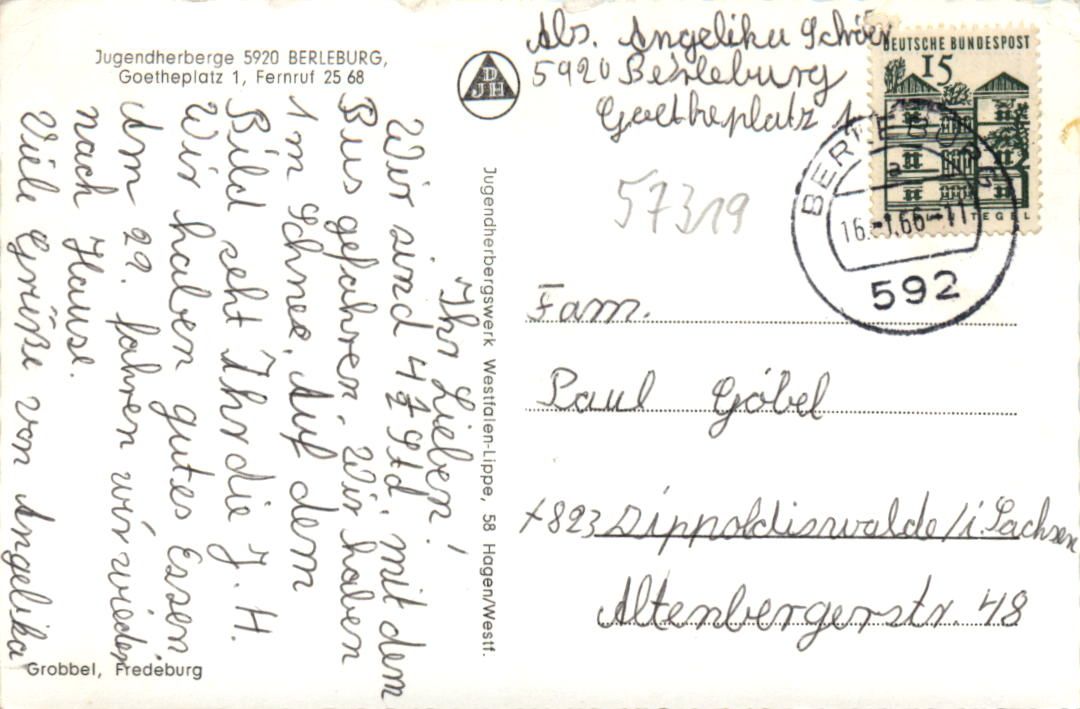 Jugendherberge 5920 BERLEBURG,
Goetheplatz 1, Fernruf 25 68
DJH
Abs. Angelika
5920 Berleburg
Goetheplatz 1
DEUTSCHE BUNDESPOST
15
TEGEL
BERLEBURG
a
16.-1.66-11
592
57319
Ihr Lieben!
Wir sind 4½ Std. mit dem
Bus gefahren. Wir haben
1 m Schnee. Auf dem
Bild seht Ihr die J. H.
Wir haben gutes Essen
Am 29. fahren wir wieder
nach Hause.
Viele Grüße von Angelika
Jugendherbergswerk Westfalen-Lippe, 58 Hagen/Westf.
Fam.
Paul Göbel
x823 Dippoldiswalde/i. Sachsen
Altenbergerstr. 48
Grobbel, Fredeburg